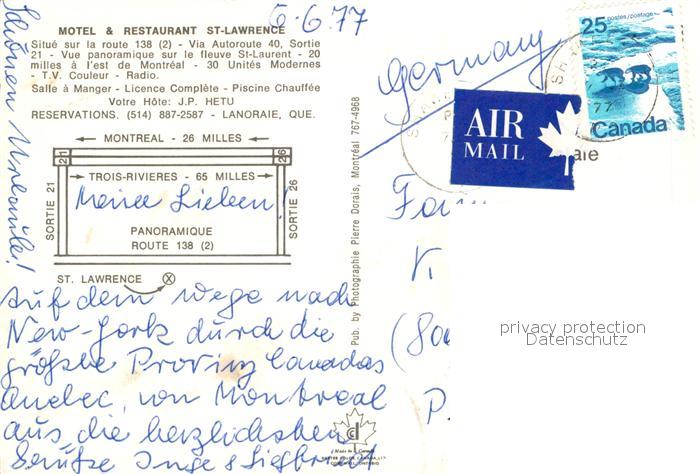 6.6.77
MOTEL & RESTAURANT ST-LAWRENCE
Situé sur la route 138 (2) - Via Autoroute 40, Sortie
21 - Vue panoramique sur le fleuve St-Laurent - 20
milles à l'est de Montréal - 30 Unités Modernes
- T.V. Couleur - Radio.
Salle à Manger - Licence Complète - Piscine Chauffée
Votre Hôte: J.P. HETU
RESERVATIONS. (514) 887-2587 - LANORAIE, QUE.
MONTREAL - 26 MILLES
21
26
TROIS-RIVIERES - 65 MILLES
SORTIE 21
SORTIE 26
Meine Lieben!
PANORAMIQUE
ROUTE 138 (2)
ST. LAWRENCE
X
Auf dem Wege nach
New-York durch die
größte Provinz Canadas
Quebec, von Montreal
aus, die herzlichsten
Grüße Inge &
Schönen Urlaub!
Pub. by Photographie Pierre Dorais, Montréal 767-4968
Made in Canada
Germany
25 postes/postage
Canada
77
AIR
MAIL
Fa
(
P.
privacy protection
Datenschutz